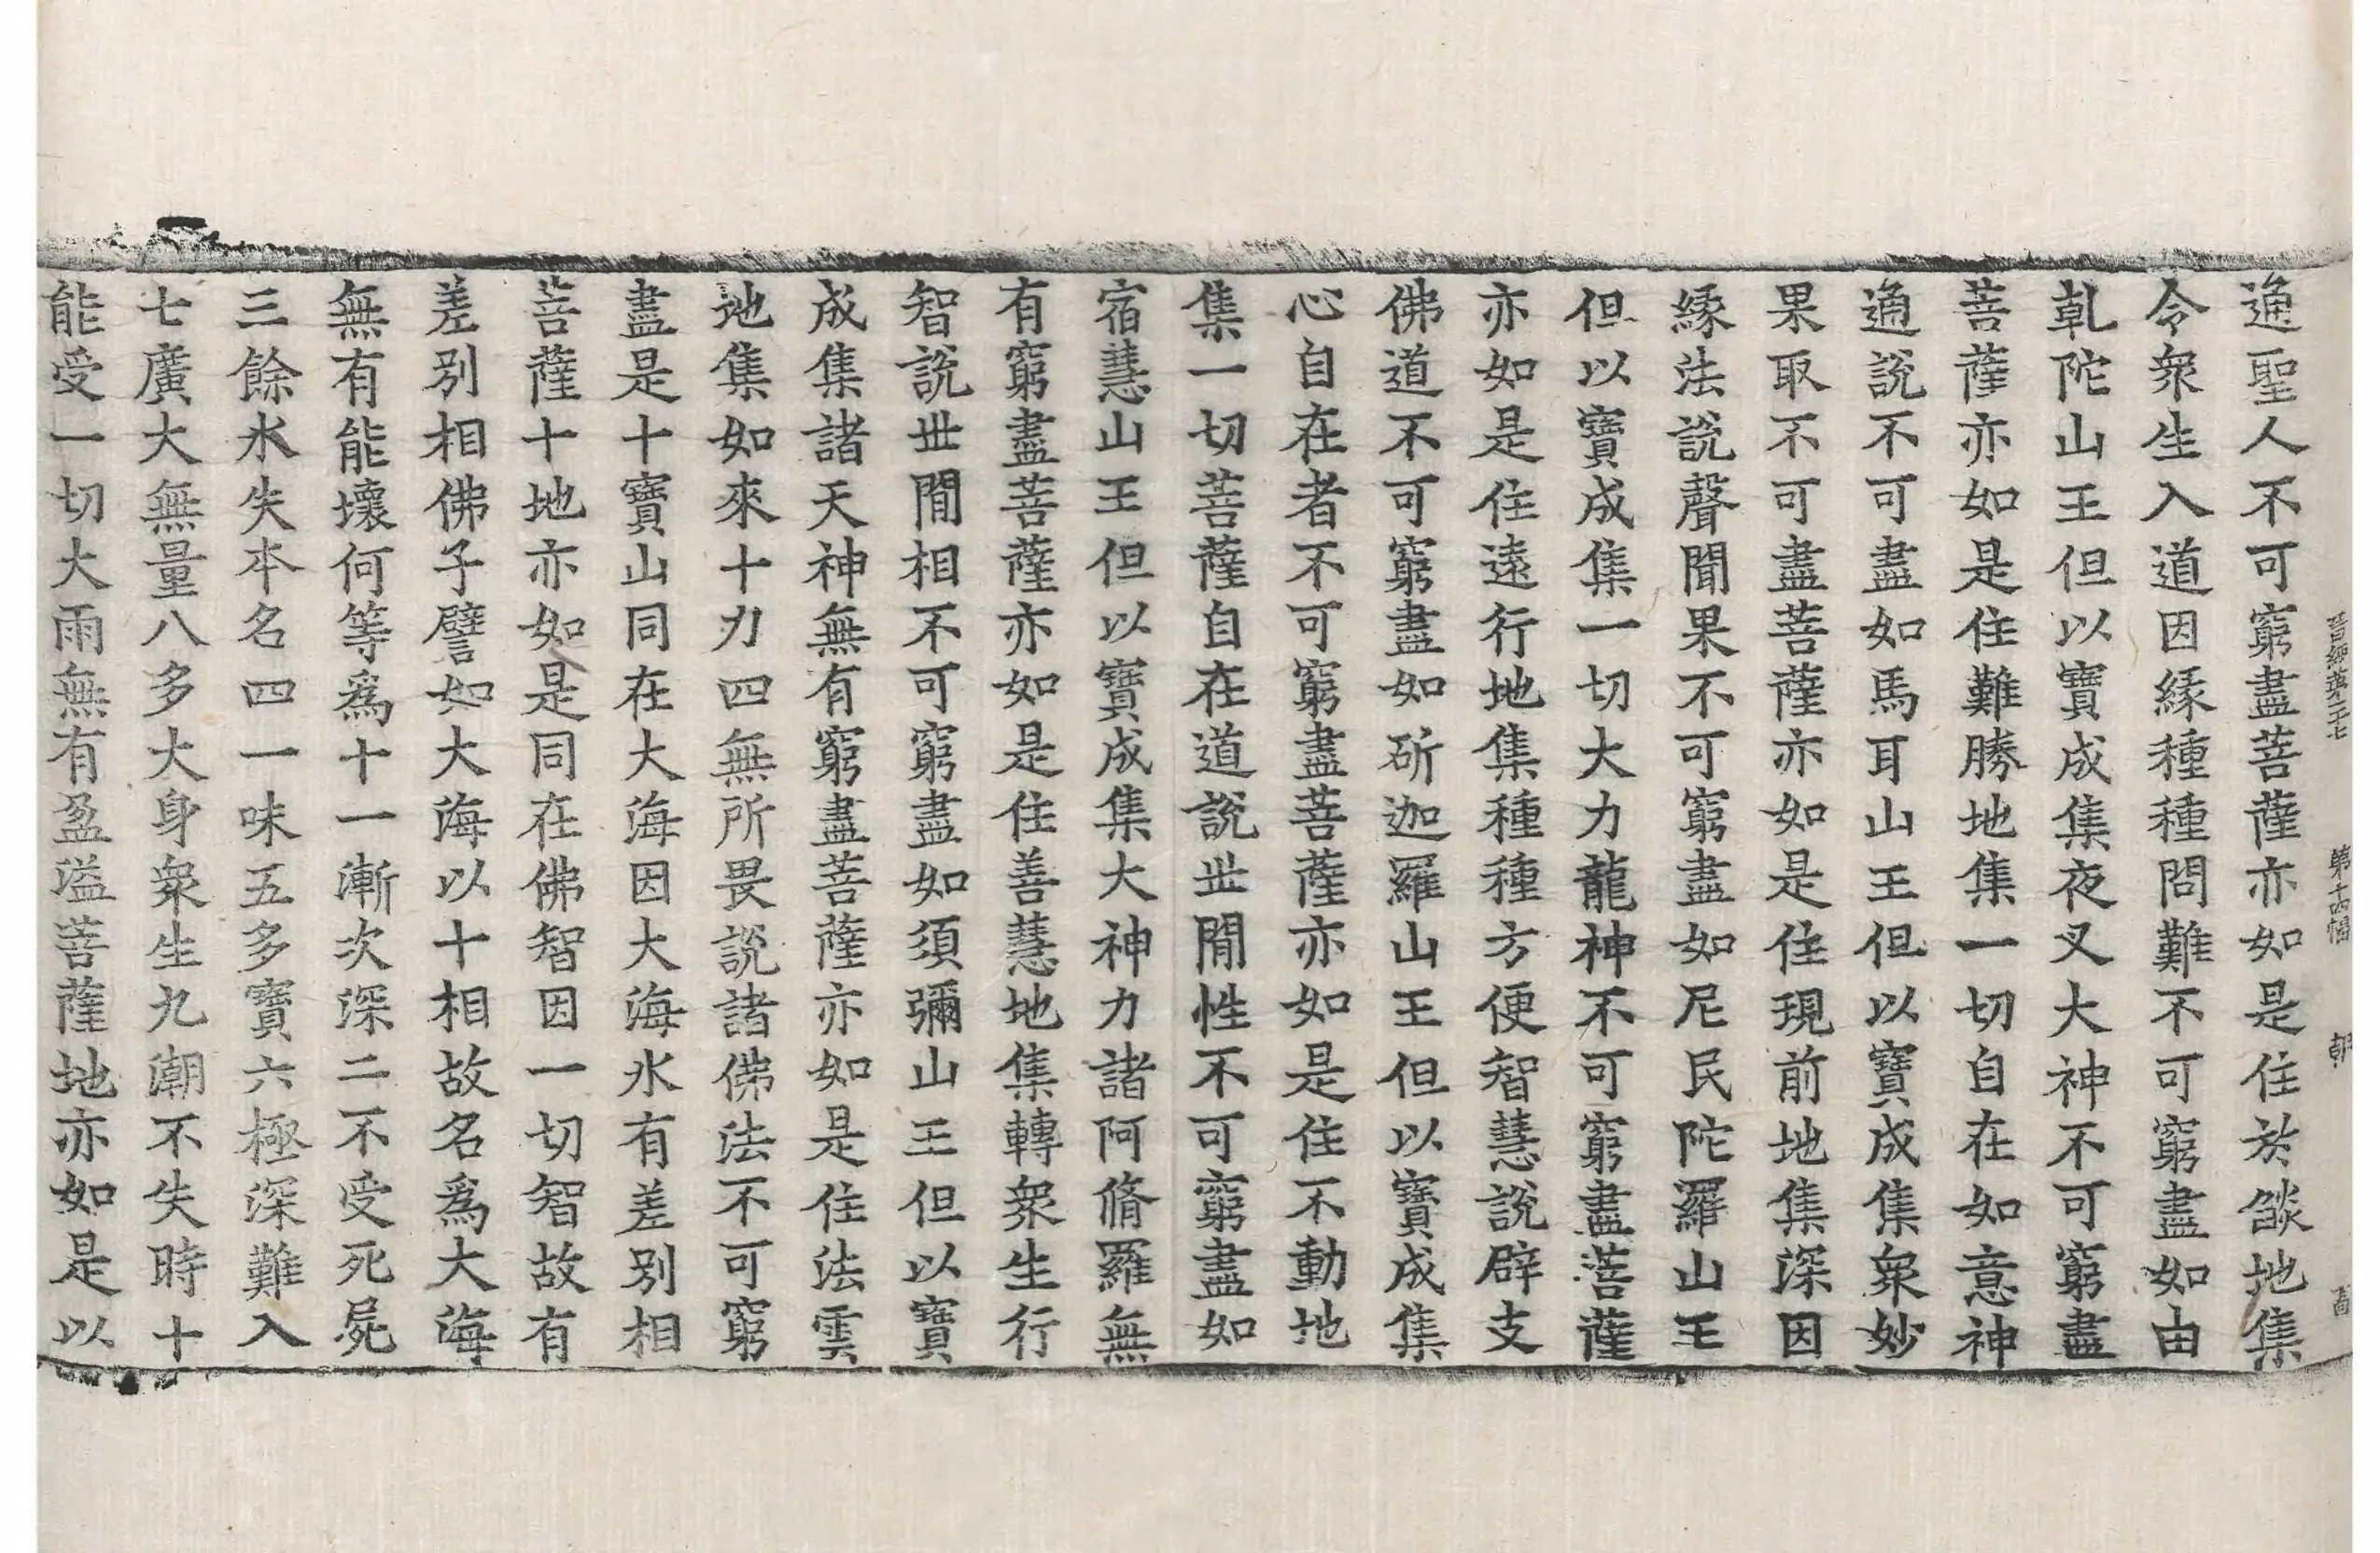 晋經卷二十七 第十四幅 朝
通聖人不可窮盡菩薩亦如是住於燄地集
令衆生入道因緣種種問難不可窮盡如由
乹陀山王但以寶成集夜叉大神不可窮盡
菩薩亦如是住難勝地集一切自在如意神
通說不可盡如馬耳山王但以寶成集衆妙
果取不可盡菩薩亦如是住現前地集深因
緣法說聲聞果不可窮盡如尼民陀羅山王
但以寶成集一切大力龍神不可窮盡菩薩
亦如是住遠行地集種種方便智慧說辟支
佛道不可窮盡如斫迦羅山王但以寶成集
心自在者不可窮盡菩薩亦如是住不動地
集一切菩薩自在道說丗閒性不可窮盡如
宿慧山王但以寶成集大神力諸阿脩羅無
有窮盡菩薩亦如是住善慧地集轉衆生行
智說丗閒相不可窮盡如須彌山王但以寶
成集諸天神無有窮盡菩薩亦如是住法雲
地集如來十力四無所畏說諸佛法不可窮
盡是十寶山同在大海因大海水有差别相
菩薩十地亦如是同在佛智因一切智故有
差别相佛子譬如大海以十相故名爲大海
無有能壞何等爲十一漸次深二不受死屍
三餘水失本名四一味五多寶六極深難入
七廣大無量八多大身衆生九潮不失時十
能受一切大雨無有盈溢菩薩地亦如是以